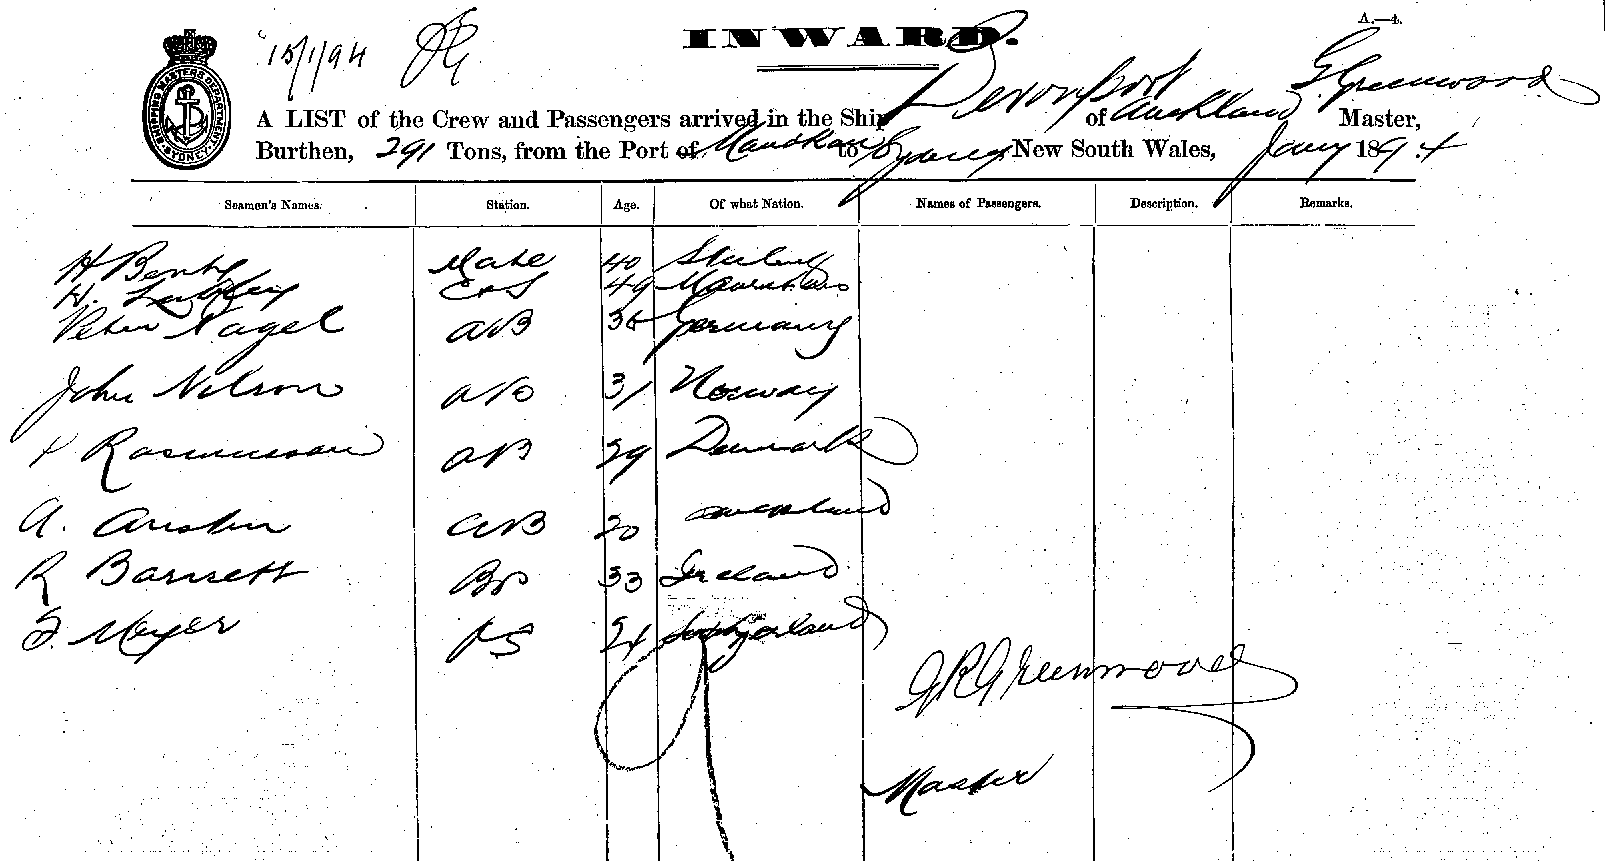 A.—4.
15/1/94
INWARD.
A LIST of the Crew and Passengers arrived in the Ship Devonport of Auckland G. Greenwood Master,
Burthen, 291 Tons, from the Port of to Sydney New South Wales, Jany 1894
SHIPPING MASTERS DEPARTMENT SYDNEY
Seamen's Names. Station. Age. Of what Nation. Names of Passengers. Description. Remarks.
H Mate 40
H. C & S 49 Mauritius
Peter Nagel AB 36 Germany
John Nilson AB 31 Norway
Rasmussen AB 29 Denmark
A. Austin AB 20
R Barnett AB 33 Ireland
F. Meyer OS 24 Switzerland
G R Greenwood
Master